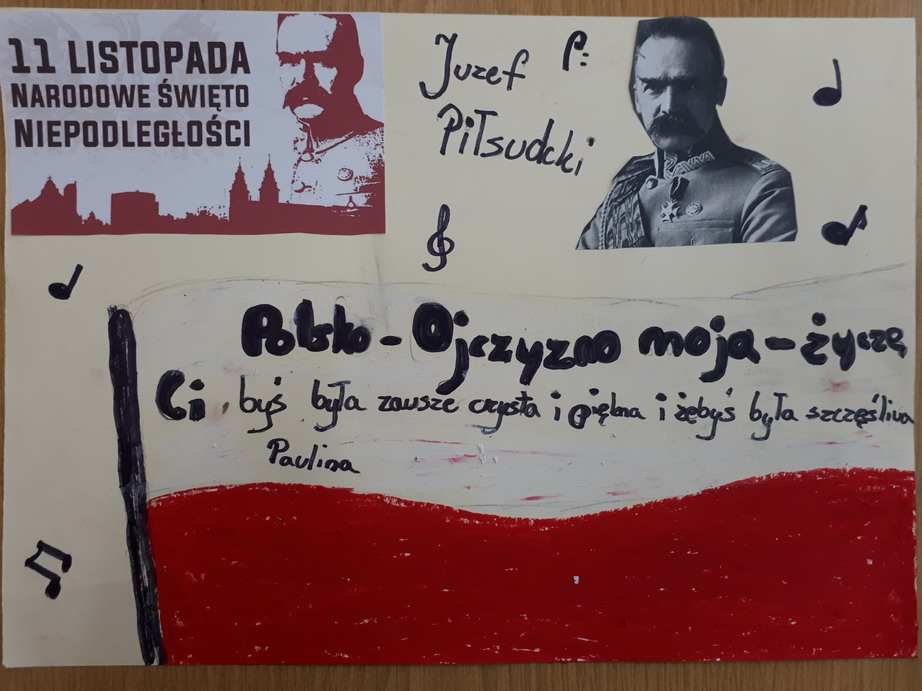 11 LISTOPADA
NARODOWE ŚWIĘTO
NIEPODLEGŁOŚCI
Juzef P:
Piłsudcki
Polsko - Ojczyzno moja - życzę
Ci, byś była zawsze czysta i piękna i żebyś była szczęśliwa
Paulina